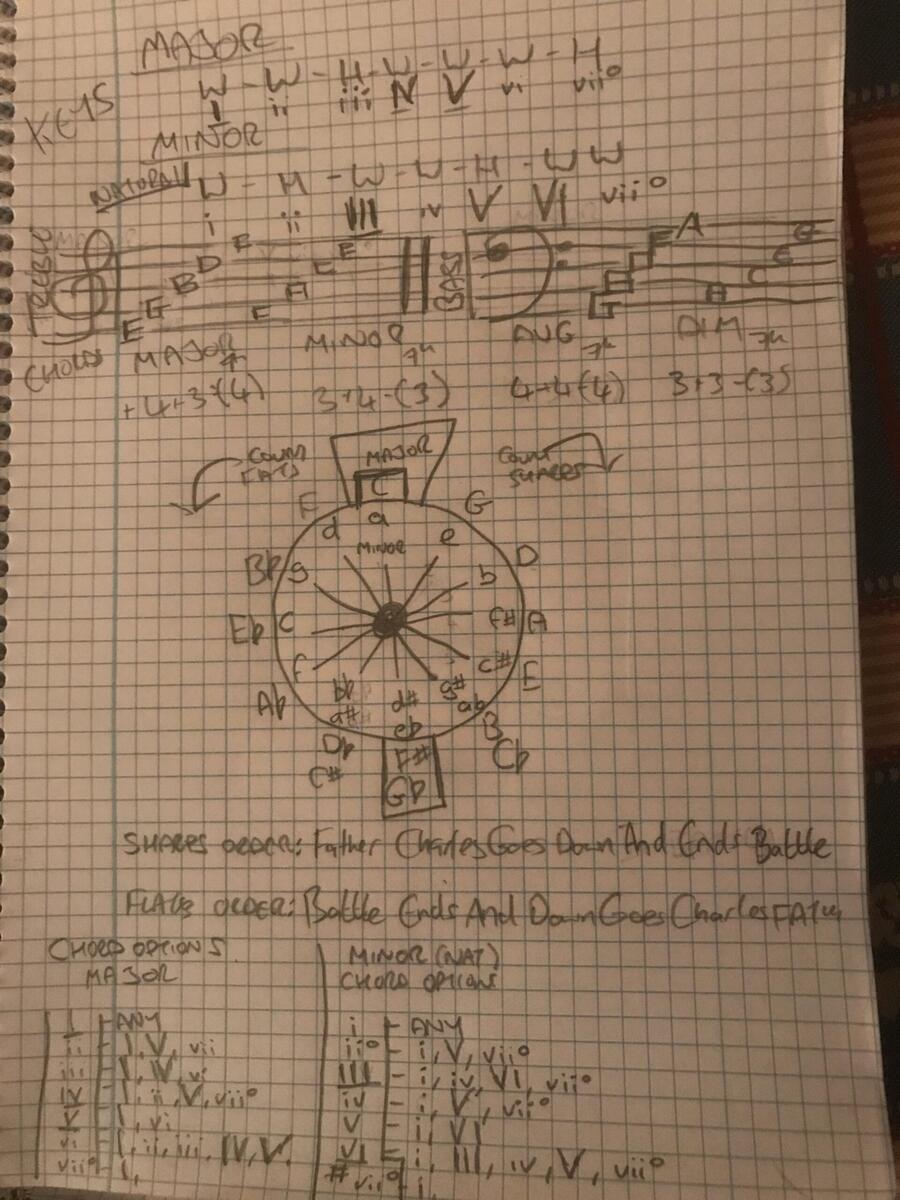 MAJOR
KEYS
W - W - H - W - W - W - H
I ii iii IV V vi vii°
MINOR
NATURAL W - H - W - W - H - W W
i ii III iv V VI vii°
TREBLE E G B D F F A C E BASS G B D F A A C E G
CHORDS MAJOR 7th MINOR 7th AUG 7th DIM 7th
+4+3+(4) 3+4-(3) 4+4(4) 3+3-(3)
COUNT FLATS MAJOR COUNT SHARPS
C
F a G
d MINOR e
Bb g b D
Eb c f# A
f c# E
Ab bb d# g# ab
a# eb B
Db F# Cb
C# Gb
SHARPS ORDER: Father Charles Goes Down And Ends Battle
FLATS ORDER: Battle Ends And Down Goes Charles FATHER
CHORD OPTIONS MINOR (NAT)
MAJOR CHORD OPTIONS
I - ANY i - ANY
ii - I, V, vii ii° - i, V, vii°
iii - I, IV, vi III - i, iv, VI, vii°
IV - I, ii, V, vii° iv - i, V, vii°
V - I, vi V - i, VI
vi - I, ii, iii, IV, V, VI - i, III, iv, V, vii°
vii° - I, # vii° i